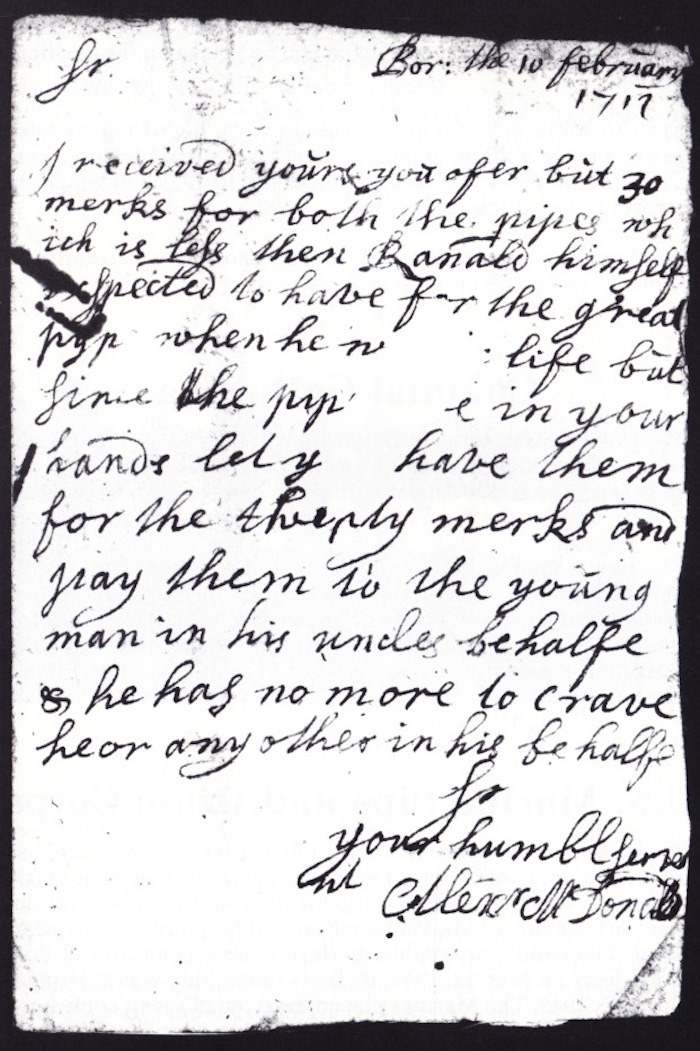 Sr
Bor: the 10 february
1717
I received yours you ofer but 30
merks for both the pipes wh
ich is less then Ranald himself
expected to have for the great
pyp when he life but
since the pyp in your
hands let have them
for the merks and
pay them to the young
man in his uncles behalfe
& he has no more to crave
heor any other in his behalfe
Sr
your humbl serva
nt Alexr McDonald